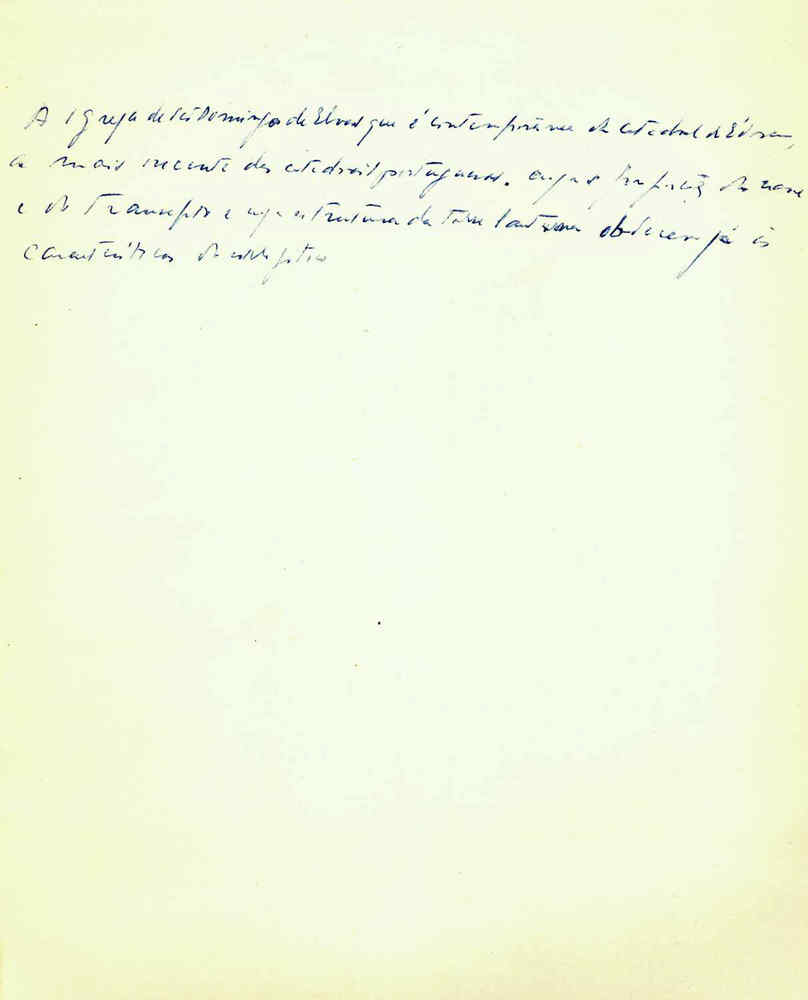 A igreja de São Domingos de Elvas que é contemporânea da catedral d'Évora,
a mais recente das catedrais portuguesas. cujas da nave
e do transepto e cuja estrutura da torre lanterna obedecem já às
características do